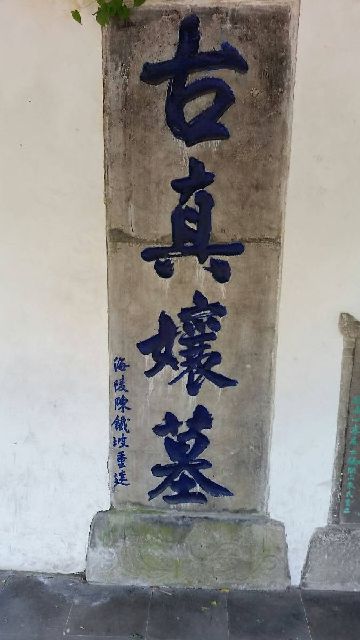 古真孃墓
海陵陳鐵坡重建